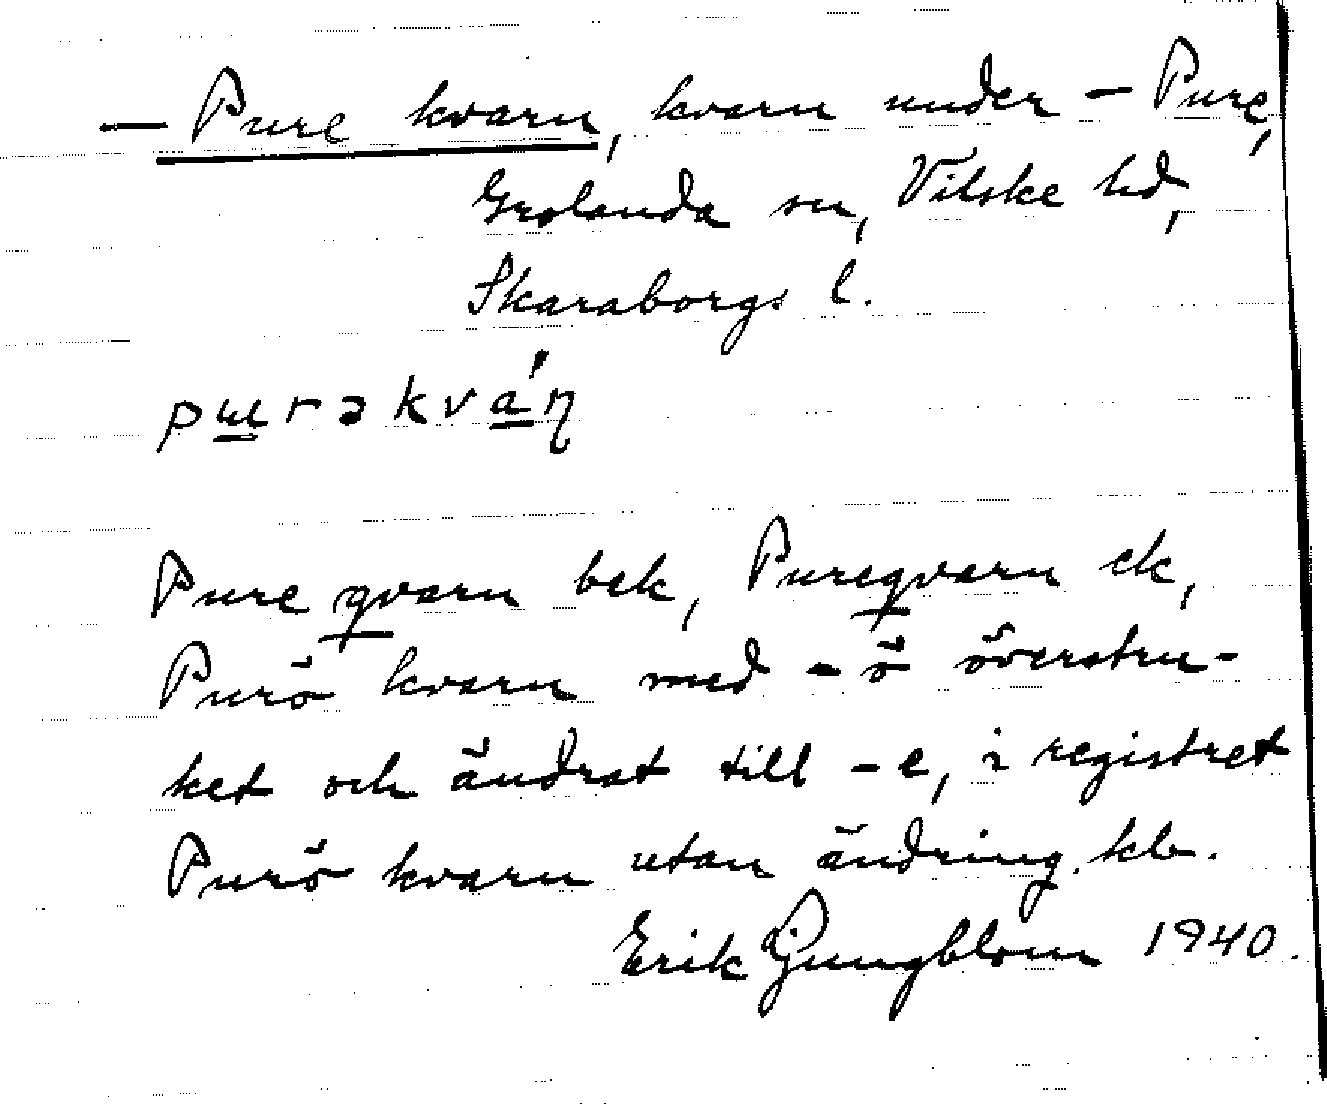 — Pure kvarn, kvarn under — Pure,
Grolanda sn, Vilske hd,
Skaraborgs l.
pɯrəkvá̱ɳ
Pure qvarn bek, Pureqvarn ek,
Purö kvarn med -ö överstru-
ket och ändrat till -e, i registret
Purö kvarn utan ändring. kb.
Erik Ljungblom 1940.